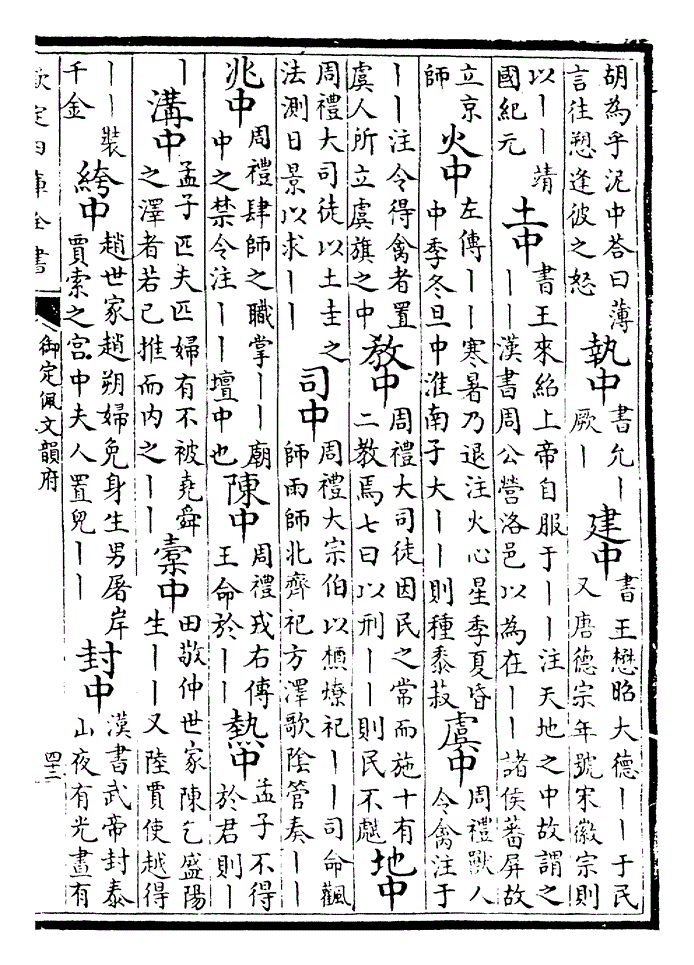 胡為乎泥中荅曰薄
言往愬逢彼之怒
執中
書允丨
厥丨
建中
書王懋昭大德丨丨于民
又唐德宗年號宋徽宗則
以丨丨靖
國紀元
土中
書王來紹上帝自服于丨丨注天地之中故謂之
丨丨漢書周公營洛邑以為在丨丨諸侯蕃屏故
立京
師
火中
左傳丨丨寒暑乃退注火心星季夏昏
中季冬旦中淮南子大丨丨則種黍菽
虞中
周禮獸人
令禽注于
丨丨注令得禽者置
虞人所立虞旗之中
教中
周禮大司徒因民之常而施十有
二教焉七曰以刑丨丨則民不虣
地中
周禮大司徒以土圭之
法測日景以求丨丨
司中
周禮大宗伯以槱燎祀丨丨司命飌
師雨師北齊祀方澤歌陰管奏丨丨
兆中
周禮肆師之職掌丨丨廟
中之禁令注丨丨壇中也
陳中
周禮戎右傳
王命於丨丨
熱中
孟子不得
於君則丨
丨
溝中
孟子匹夫匹婦有不被堯舜
之澤者若已推而内之丨丨
橐中
田敬仲世家陳乞盛陽
生丨丨又陸賈使越得
丨丨裝
千金
絝中
趙世家趙朔婦免身生男屠岸
賈索之宫中夫人置兒丨丨
封中
漢書武帝封泰
山夜有光晝有
欽定四庫全書
御定佩文韻府
四十三